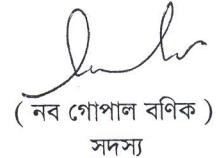 ( নব গোপাল বণিক )
সদস্য